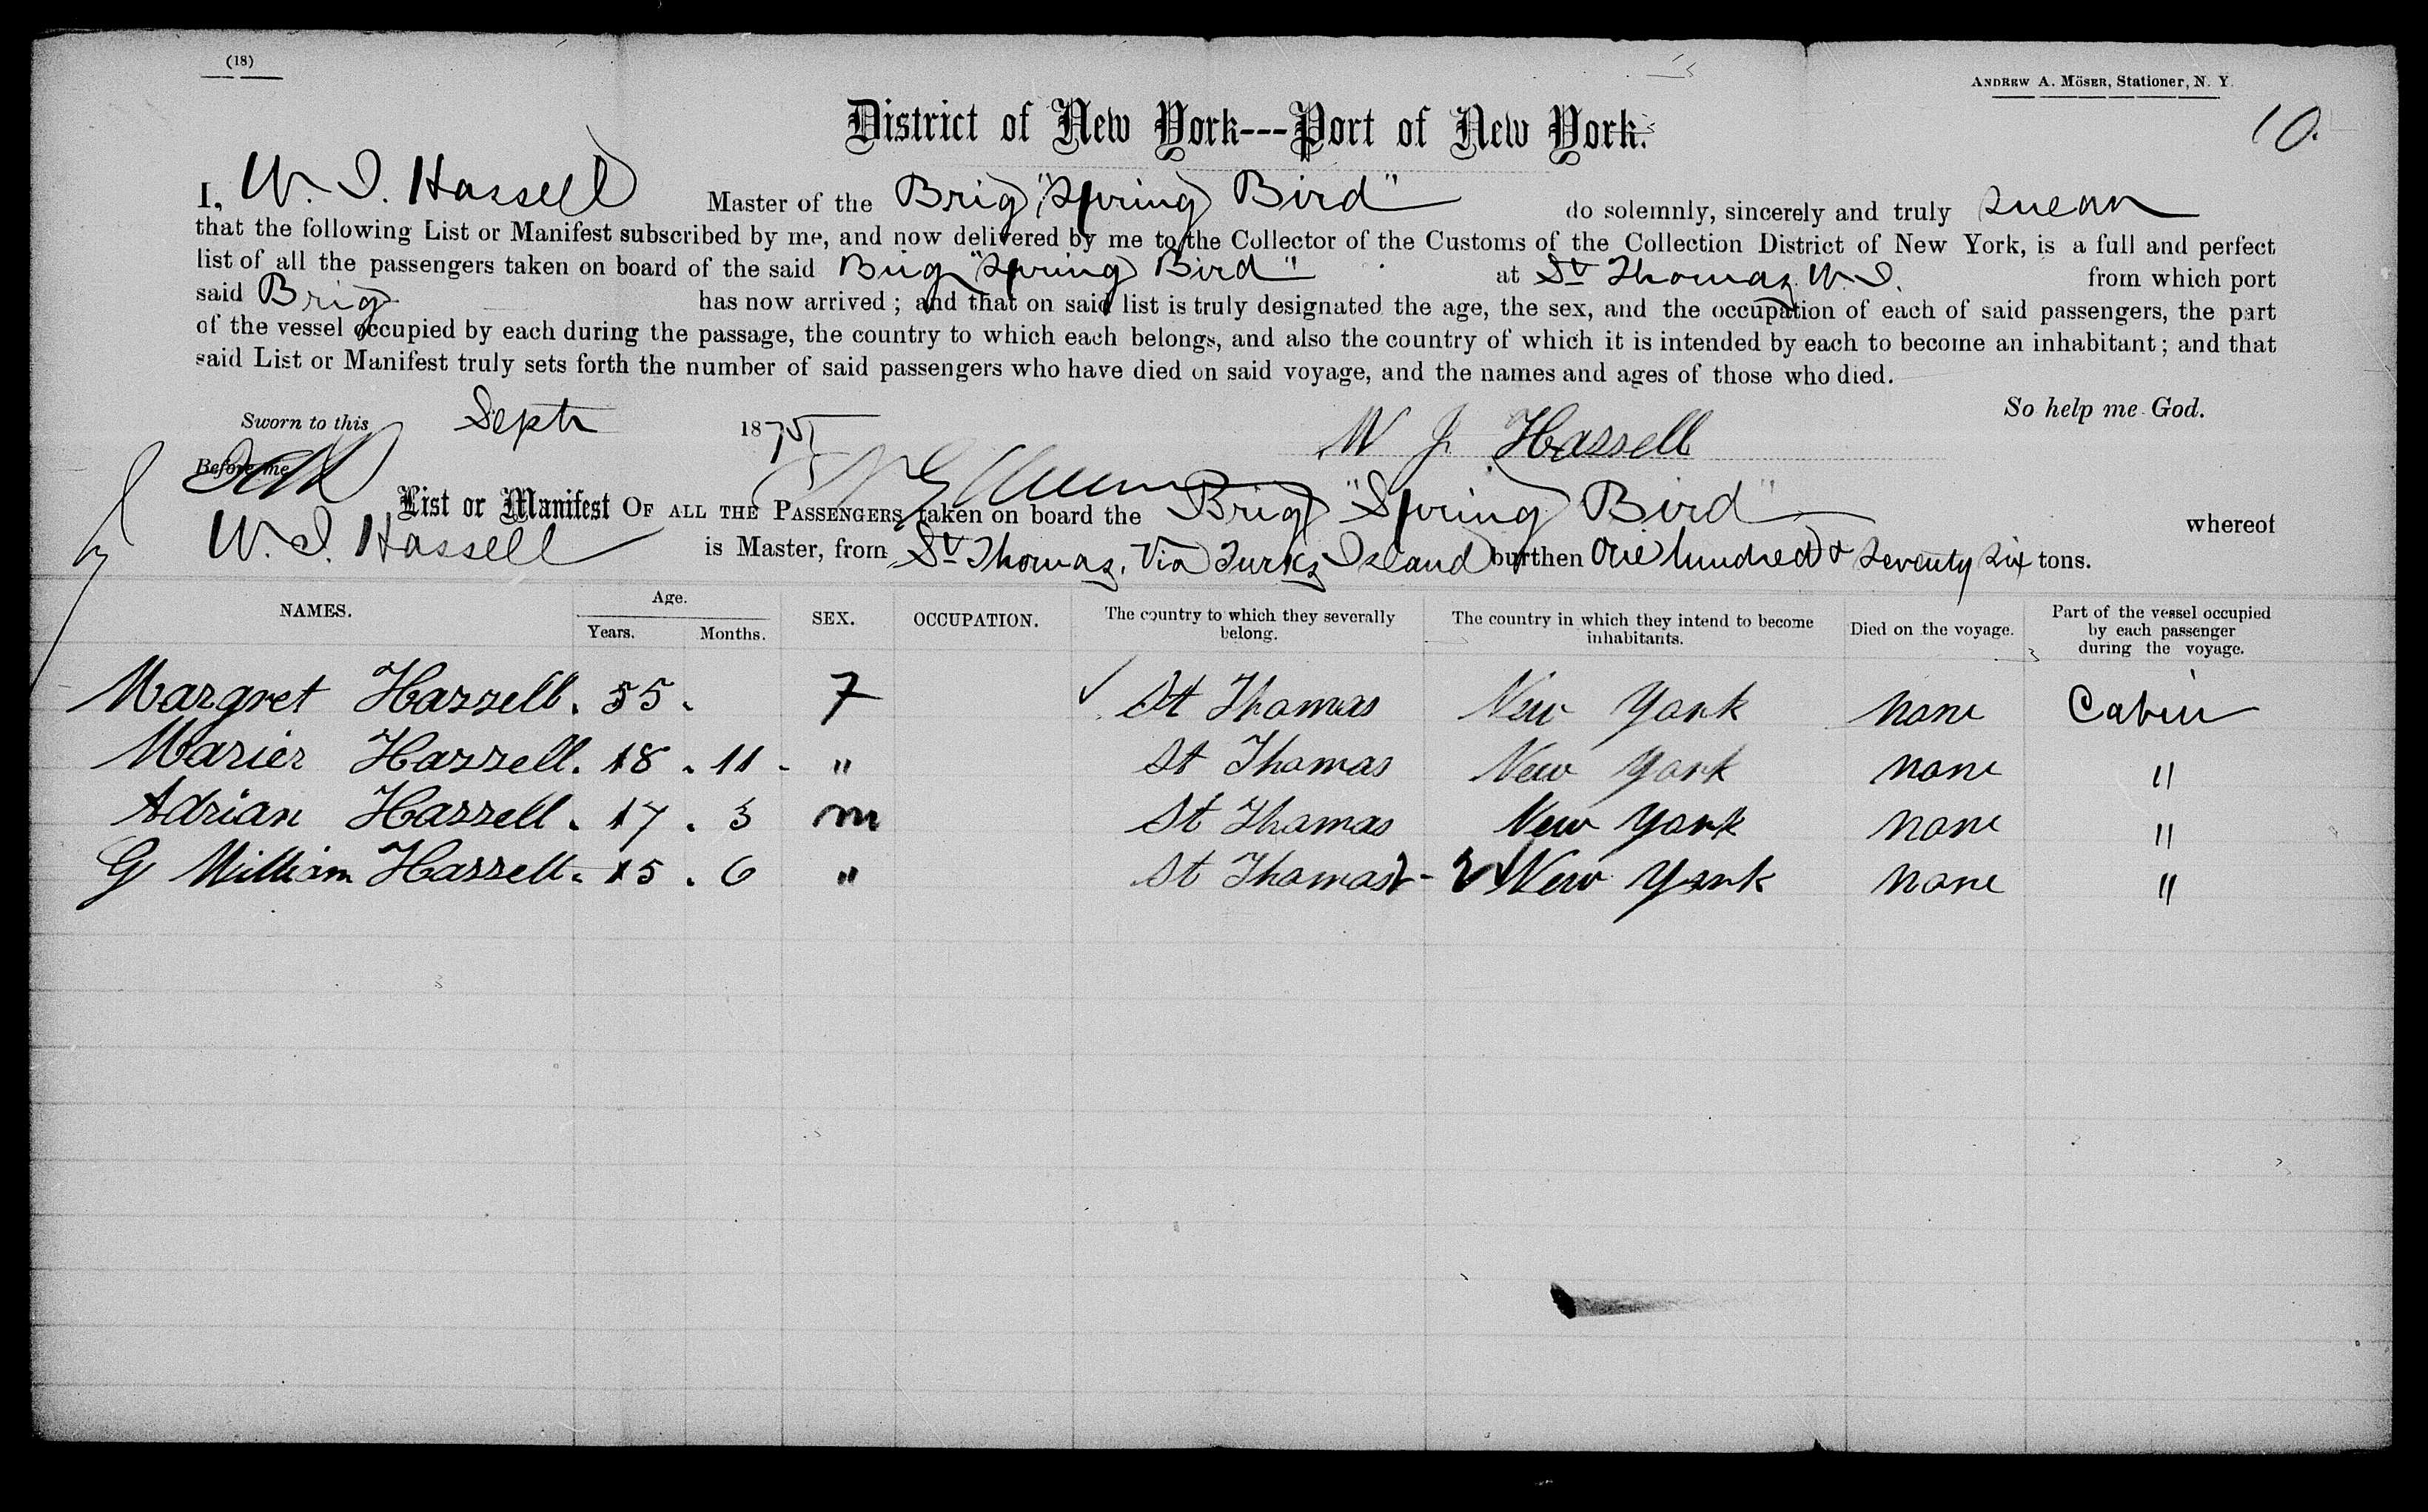 (18)
ANDREW A. MÖSER, Stationer, N. Y.
10.
District of New York---Port of New York.
I, W. I. Hassell Master of the Brig "Spring Bird" do solemnly, sincerely and truly swear
that the following List or Manifest subscribed by me, and now delivered by me to the Collector of the Customs of the Collection District of New York, is a full and perfect
list of all the passengers taken on board of the said Brig "Spring Bird" at St Thomas W. I. from which port
said Brig has now arrived ; and that on said list is truly designated the age, the sex, and the occupation of each of said passengers, the part
of the vessel occupied by each during the passage, the country to which each belongs, and also the country of which it is intended by each to become an inhabitant ; and that
said List or Manifest truly sets forth the number of said passengers who have died on said voyage, and the names and ages of those who died.
So help me God.
Sworn to this Septr 1875 W J Hassell
Before me
List or Manifest OF ALL THE PASSENGERS taken on board the Brig "Spring Bird" whereof
W. I. Hassell is Master, from St Thomas. Via Turks Island burthen One hundred & Seventy Six tons.
NAMES. Age. Years. Months. SEX. OCCUPATION. The country to which they severally belong. The country in which they intend to become inhabitants. Died on the voyage. Part of the vessel occupied by each passenger during the voyage.
Margret Hassell. 55. F St Thomas New York none Cabin
Marier Hassell. 18. 11 - " St Thomas New York none "
Adrian Hassell. 17. 3 m St Thomas New York none "
G William Hassell. 15. 6 " St Thomas 2 - 2 New York none "